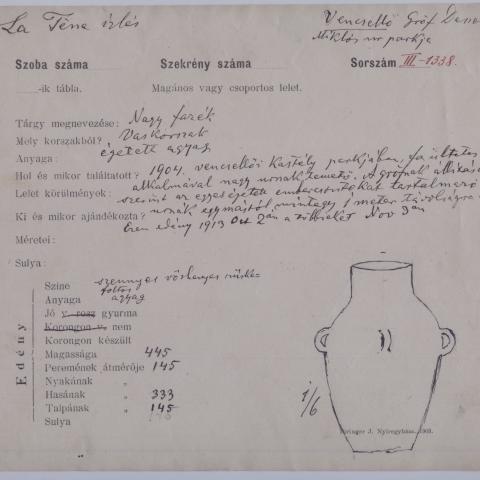 La Téne izlés
Vencsellő Gróf Dessewffy
Miklós úr parkja
Szoba száma Szekrény száma Sorszám III-1338.
-ik tábla. Magános vagy csoportos lelet.
Tárgy megnevezése: Nagy fazék
Mely korszakból? Vaskorszak
Anyaga: égetett agyag
Hol és mikor találtatott? 1904. vencsellői kastély parkjában, fa ültetés
Lelet körülmények: alkalmával nagy urnatemető. A grófnak állítása
szerint az egyes égetett embercsontokat tartalmazó
Ki és mikor ajándékozta? urnák egymástól mintegy 1 meter távolságra
Ezen edény 1913 Oct 2án a többiekét Nov 3án
Méretei:
Sulya:
Edény
Szine szennyes vöröhenyes szürke
foltos
Anyaga agyag
Jó v. rosz gyurma
Korongon v. nem
Korongon készült
Magassága 445
Peremének átmérője 145
Nyakának "
Hasának " 333
Talpának " 145
Sulya
1/6
Piringer J. Nyiregyháza, 1903.